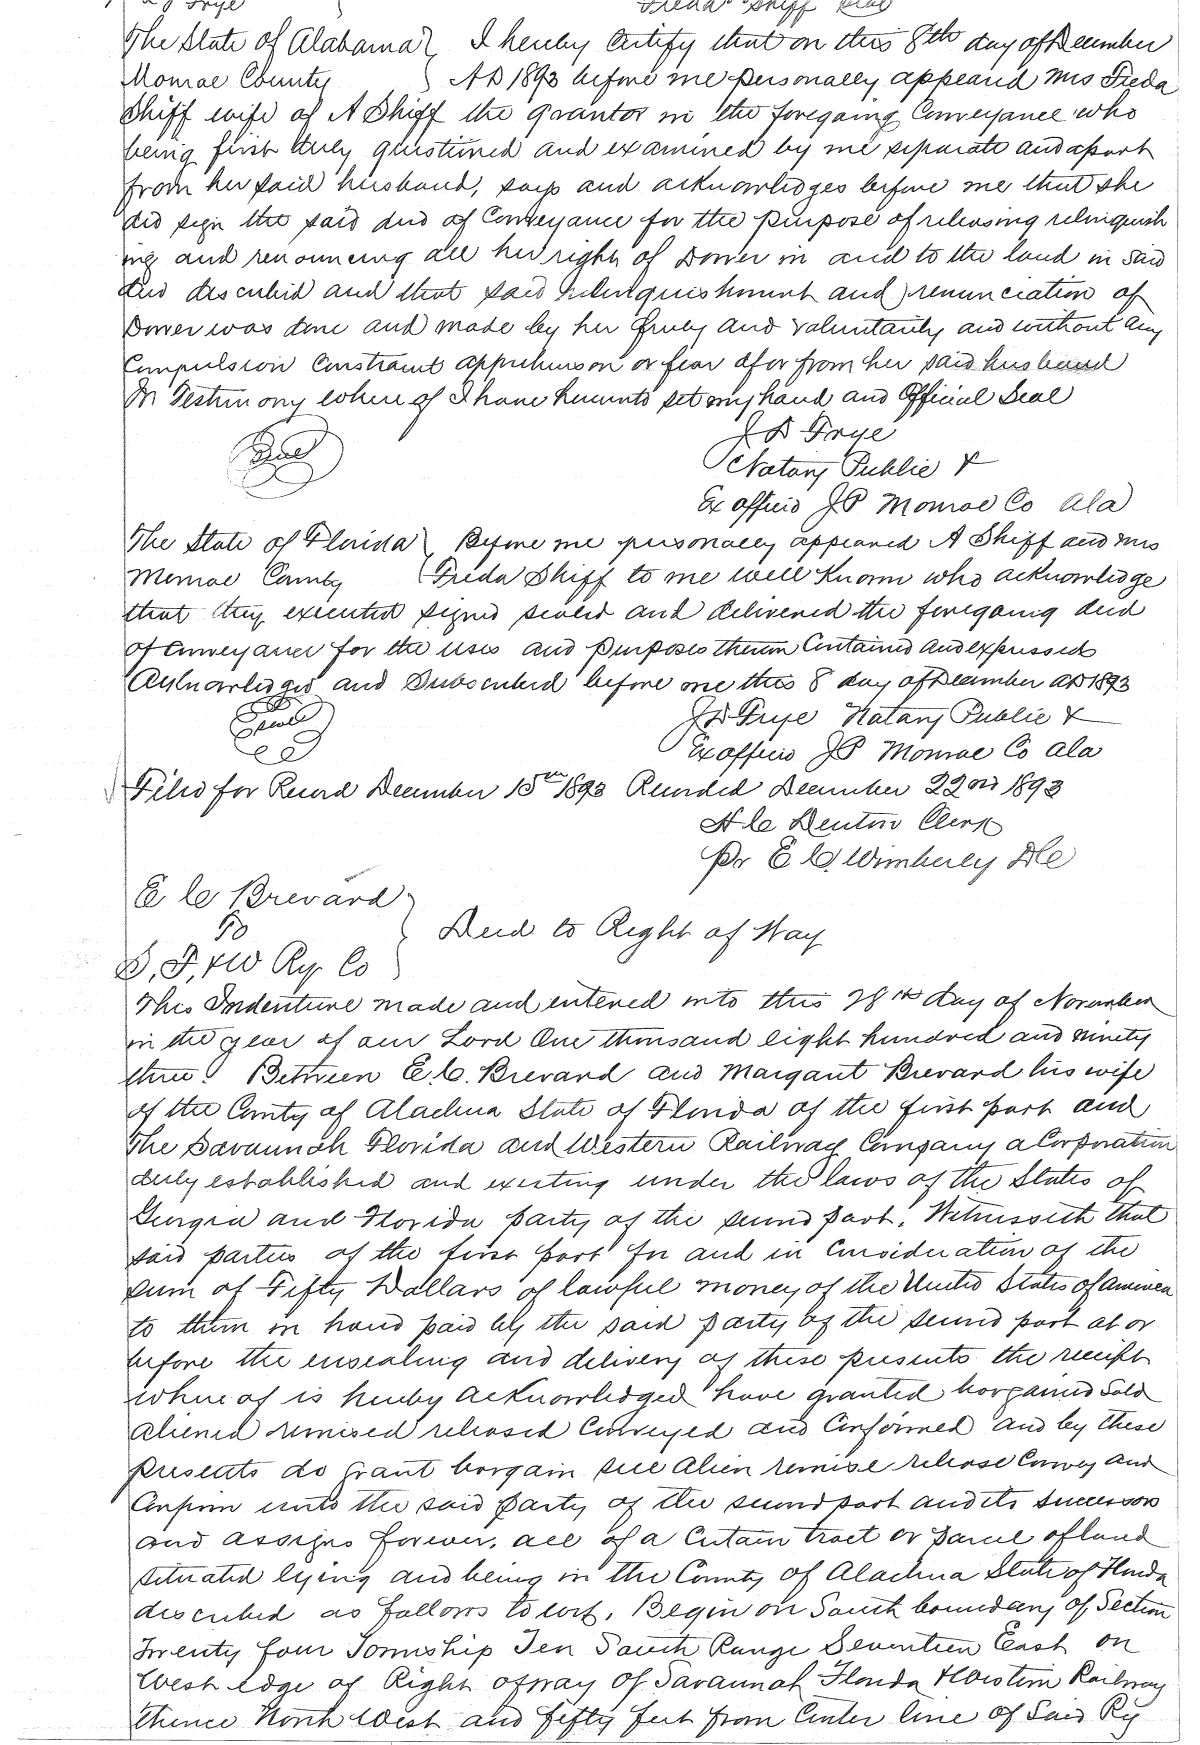 J D Frye                    Freda Shiff Seal
The State of Alabama } I hereby Certify that on this 8th day of December
Monroe County } AD 1893 before me personally appeard Mrs Freda
Shiff wife of A Shiff the grantor in the foregoing Conveyance who
being first duly questioned and examined by me separate and apart
from her said husband, says and acknowledges before me that she
did sign the said deed of Conveyance for the purpose of releasing relinquish
ing and renouncing all her right of Dower in and to the land in said
deed described and that said relinquishment and renunciation of
Dower was done and made by her freely and voluntarily and without any
Compulsion Constraint apprehension or fear of or from her said husband
In Testimony whereof I have hereunto set my hand and Official Seal
Seal                    J D Frye
Notary Public &
Ex officio JP Monroe Co Ala
The State of Florida } Before me personally appeared A Shiff and Mrs
Monroe County } Freda Shiff to me well known who acknowledge
that they executed signed sealed and delivered the foregoing deed
of Conveyance for the uses and purposes therein Contained and expressed
Acknowledged and Subscribed before me this 8 day of December AD 1893
Seal                    J D Frye Notary Public &
Ex officio JP Monroe Co Ala
Filed for Record December 15th 1893 Recorded December 22nd 1893
H C Denton Clerk
Pr E C. Wimberly DC
E C Brevard }
To } Deed to Right of Way
S, F, & W Ry Co }
This Indenture made and entered into this 28th day of November
in the year of our Lord One thousand eight hundred and ninety
three. Between E. C. Brevard and Margaret Brevard his wife
of the County of Alachua State of Florida of the first part and
The Savannah Florida and Western Railway Company a Corporation
duly established and existing under the laws of the States of
Georgia and Florida party of the second part. Witnesseth that
said parties of the first part for and in Consideration of the
sum of Fifty Dollars of lawful money of the United States of America
to them in hand paid by the said party of the second part at or
before the ensealing and delivery of these presents the receipt
whereof is hereby acknowledged have granted bargained sold
aliened remised released Conveyed and Confirmed and by these
presents do grant bargain sell alien remise release Convey and
Confirm unto the said party of the second part and its successors
and assigns forever, all of a Certain tract or parcel of land
situated lying and being in the County of Alachua State of Florida
described as follows to wit. Begin on South boundary of Section
Twenty four Township Ten South Range Seventeen East on
West edge of Right of way of Savannah Florida & Western Railway
thence North West and fifty feet from Center line of Said Ry